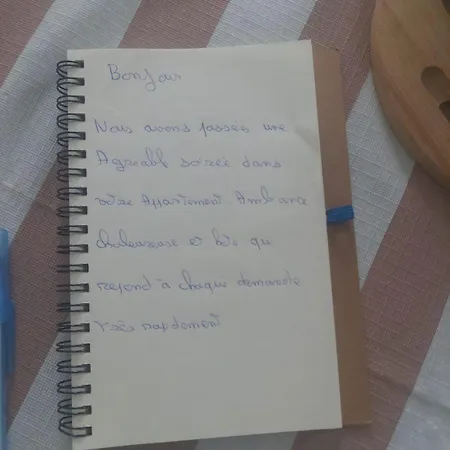 Bonjour
Nous avons passées une
Agréabl soirée dans
votre Appartement. Ambiance
chaleureuse et hôte qui
repond à chaque demande
très rapidement